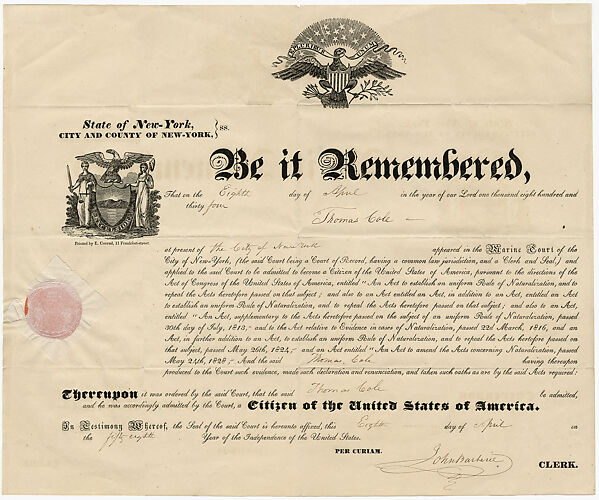 E PLURIBUS UNUM
State of New-York, } ss.
CITY AND COUNTY OF NEW-YORK,
EXCELSIOR
Printed by E. Conrad, 11 Frankfort-street.
Be it Remembered,
That on the Eighth day of April in the year of our Lord one thousand eight hundred and
thirty four Thomas Cole
at present of the City of New York appeared in the Marine Court of the
City of New-York, (the said Court being a Court of Record, having a common law jurisdiction, and a Clerk and Seal,) and
applied to the said Court to be admitted to become a Citizen of the United States of America, pursuant to the directions of the
Act of Congress of the United States of America, entitled "An Act to establish an uniform Rule of Naturalization, and to
repeal the Acts heretofore passed on that subject; and also to an Act entitled an Act, in addition to an Act, entitled an Act
to establish an uniform Rule of Naturalization, and to repeal the Acts heretofore passed on that subject; and also to an Act,
entitled "An Act, supplementary to the Acts heretofore passed on the subject of an uniform Rule of Naturalization, passed
30th day of July, 1813,- and to the Act relative to Evidence in cases of Naturalization, passed 22d March, 1816, and an
Act, in further addition to an Act, to establish an uniform Rule of Naturalization, and to repeal the Acts heretofore passed on
that subject, passed May 26th, 1824,- and an Act entitled "An Act to amend the Acts concerning Naturalization, passed
May 24th, 1828,- And the said Thomas Cole having thereupon
produced to the Court such evidence, made such declaration and renunciation, and taken such oaths as are by the said Acts required:
Thereupon it was ordered by the said Court, that the said Thomas Cole be admitted,
and he was accordingly admitted by the Court, a Citizen of the United States of America.
In Testimony Whereof, the Seal of the said Court is hereunto affixed, this Eighth day of April in
the fifty eighth Year of the Independence of the United States.
PER CURIAM.
John Barberie CLERK.